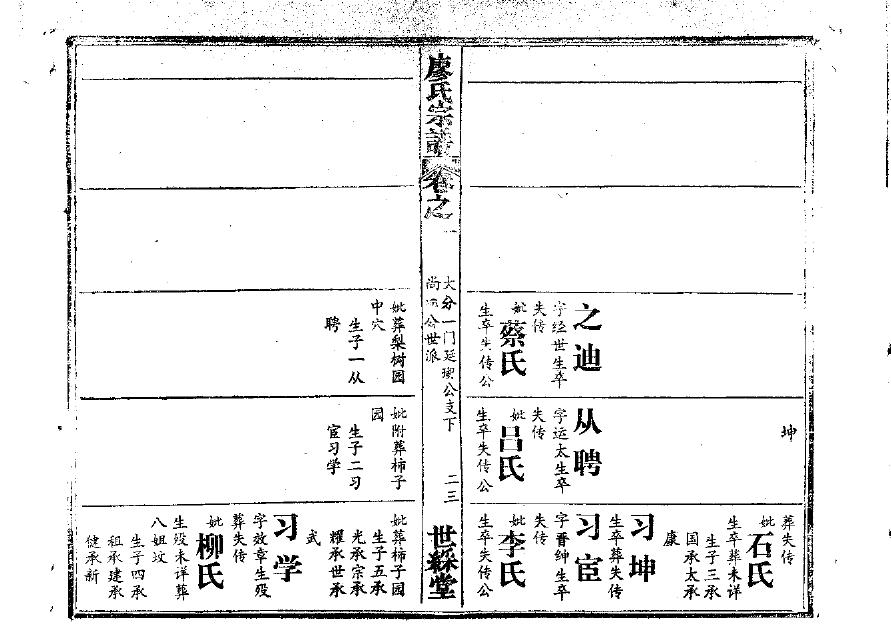 坤
葬失传
妣石氏
生卒葬未详
生子三承
国承太承
康
习坤
生卒葬失传
之迪
字经世生卒
失传
妣蔡氏
生卒失传公
从聘
字运太生卒
失传
妣吕氏
生卒失传公
习宦
字晋绅生卒
失传
妣李氏
生卒失传公
廖氏宗譜
卷之
大分一门廷理公支下
尚公世派
二三
世綵堂
妣葬梨树园
中穴
生子一从
聘
妣附葬柿子
园
生子二习
宦习学
妣葬柿子园
生子五承
光承宗承
耀承世承
武
习学
字效章生殁
葬失传
妣柳氏
生殁未详葬
八姐坟
生子四承
祖承建承
健承新